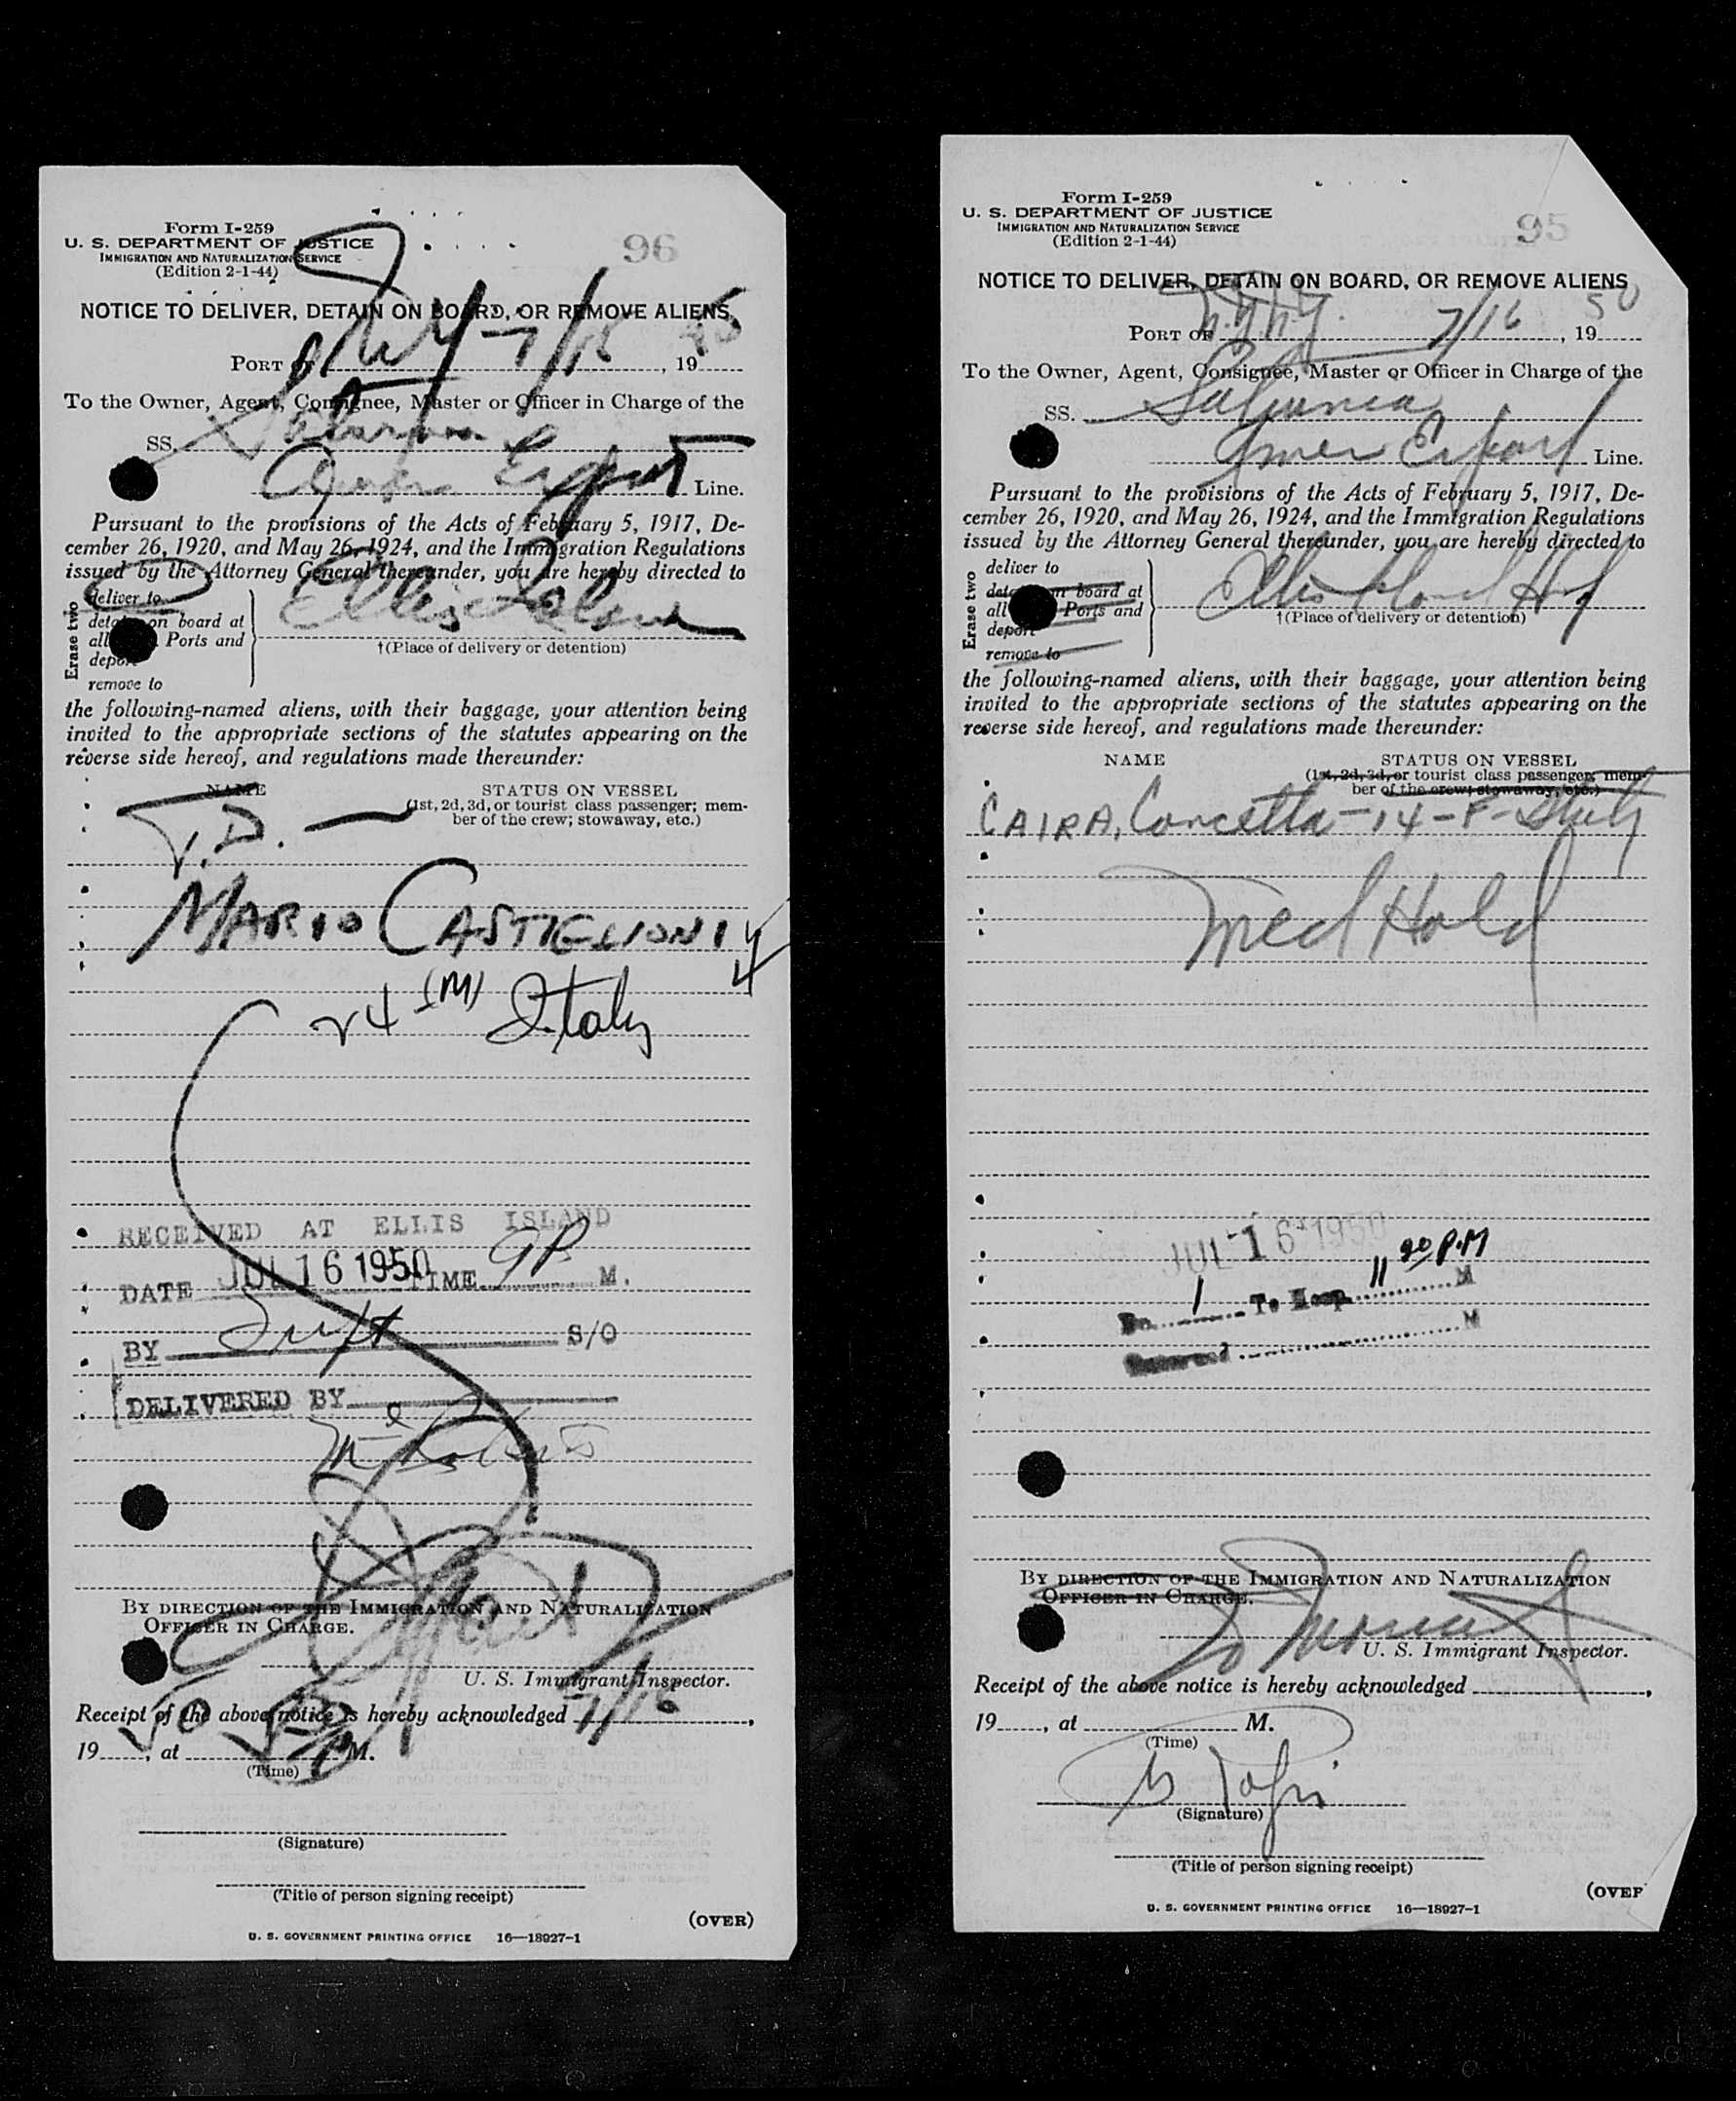 96
Form I-259
U. S. DEPARTMENT OF JUSTICE
IMMIGRATION AND NATURALIZATION SERVICE
(Edition 2-1-44)
NOTICE TO DELIVER, DETAIN ON BOARD, OR REMOVE ALIENS
PORT OF NY - 7/16, 19
To the Owner, Agent, Consignee, Master or Officer in Charge of the
SS. Saturnia
Export Line.
Pursuant to the provisions of the Acts of February 5, 1917, De-
cember 26, 1920, and May 26, 1924, and the Immigration Regulations
issued by the Attorney General thereunder, you are hereby directed to
Erase two
deliver to
on board at
Ports and
remove to
Ellis Island
†(Place of delivery or detention)
the following-named aliens, with their baggage, your attention being
invited to the appropriate sections of the statutes appearing on the
reverse side hereof, and regulations made thereunder:
NAME STATUS ON VESSEL
(1st, 2d, 3d, or tourist class passenger; mem-
ber of the crew; stowaway, etc.)
T.D. —
MARIO CASTIGLIONI
24 (M) Italy
RECEIVED AT ELLIS ISLAND
DATE JUL 16 1950 TIME 9 P. M.
BY S/O
DELIVERED BY
BY DIRECTION OF THE IMMIGRATION AND NATURALIZATION
OFFICER IN CHARGE.
U. S. Immigrant Inspector.
Receipt of the above notice is hereby acknowledged 7/16,
19 50, at M.
(Time)
(Signature)
(Title of person signing receipt)
(OVER)
U. S. GOVERNMENT PRINTING OFFICE 16—18927-1
95
Form I-259
U. S. DEPARTMENT OF JUSTICE
IMMIGRATION AND NATURALIZATION SERVICE
(Edition 2-1-44)
NOTICE TO DELIVER, DETAIN ON BOARD, OR REMOVE ALIENS
PORT OF N.Y.N.Y. 7/16, 19 50
To the Owner, Agent, Consignee, Master or Officer in Charge of the
SS. Saturnia
Amer Export Line.
Pursuant to the provisions of the Acts of February 5, 1917, De-
cember 26, 1920, and May 26, 1924, and the Immigration Regulations
issued by the Attorney General thereunder, you are hereby directed to
Erase two
deliver to
on board at
Ports and
deport
remove to
Ellis Island
†(Place of delivery or detention)
the following-named aliens, with their baggage, your attention being
invited to the appropriate sections of the statutes appearing on the
reverse side hereof, and regulations made thereunder:
NAME STATUS ON VESSEL
(1st, 2d, 3d, or tourist class passenger; mem-
ber of the crew; stowaway, etc.)
CAIRA, Concetta - 14 - F - Italy
Med Hold
JUL 16 1950
1 To Hosp. 11 P.M M
M
BY DIRECTION OF THE IMMIGRATION AND NATURALIZATION
OFFICER IN CHARGE.
U. S. Immigrant Inspector.
Receipt of the above notice is hereby acknowledged ,
19 , at M.
(Time)
(Signature)
(Title of person signing receipt)
(OVER
U. S. GOVERNMENT PRINTING OFFICE 16—18927-1